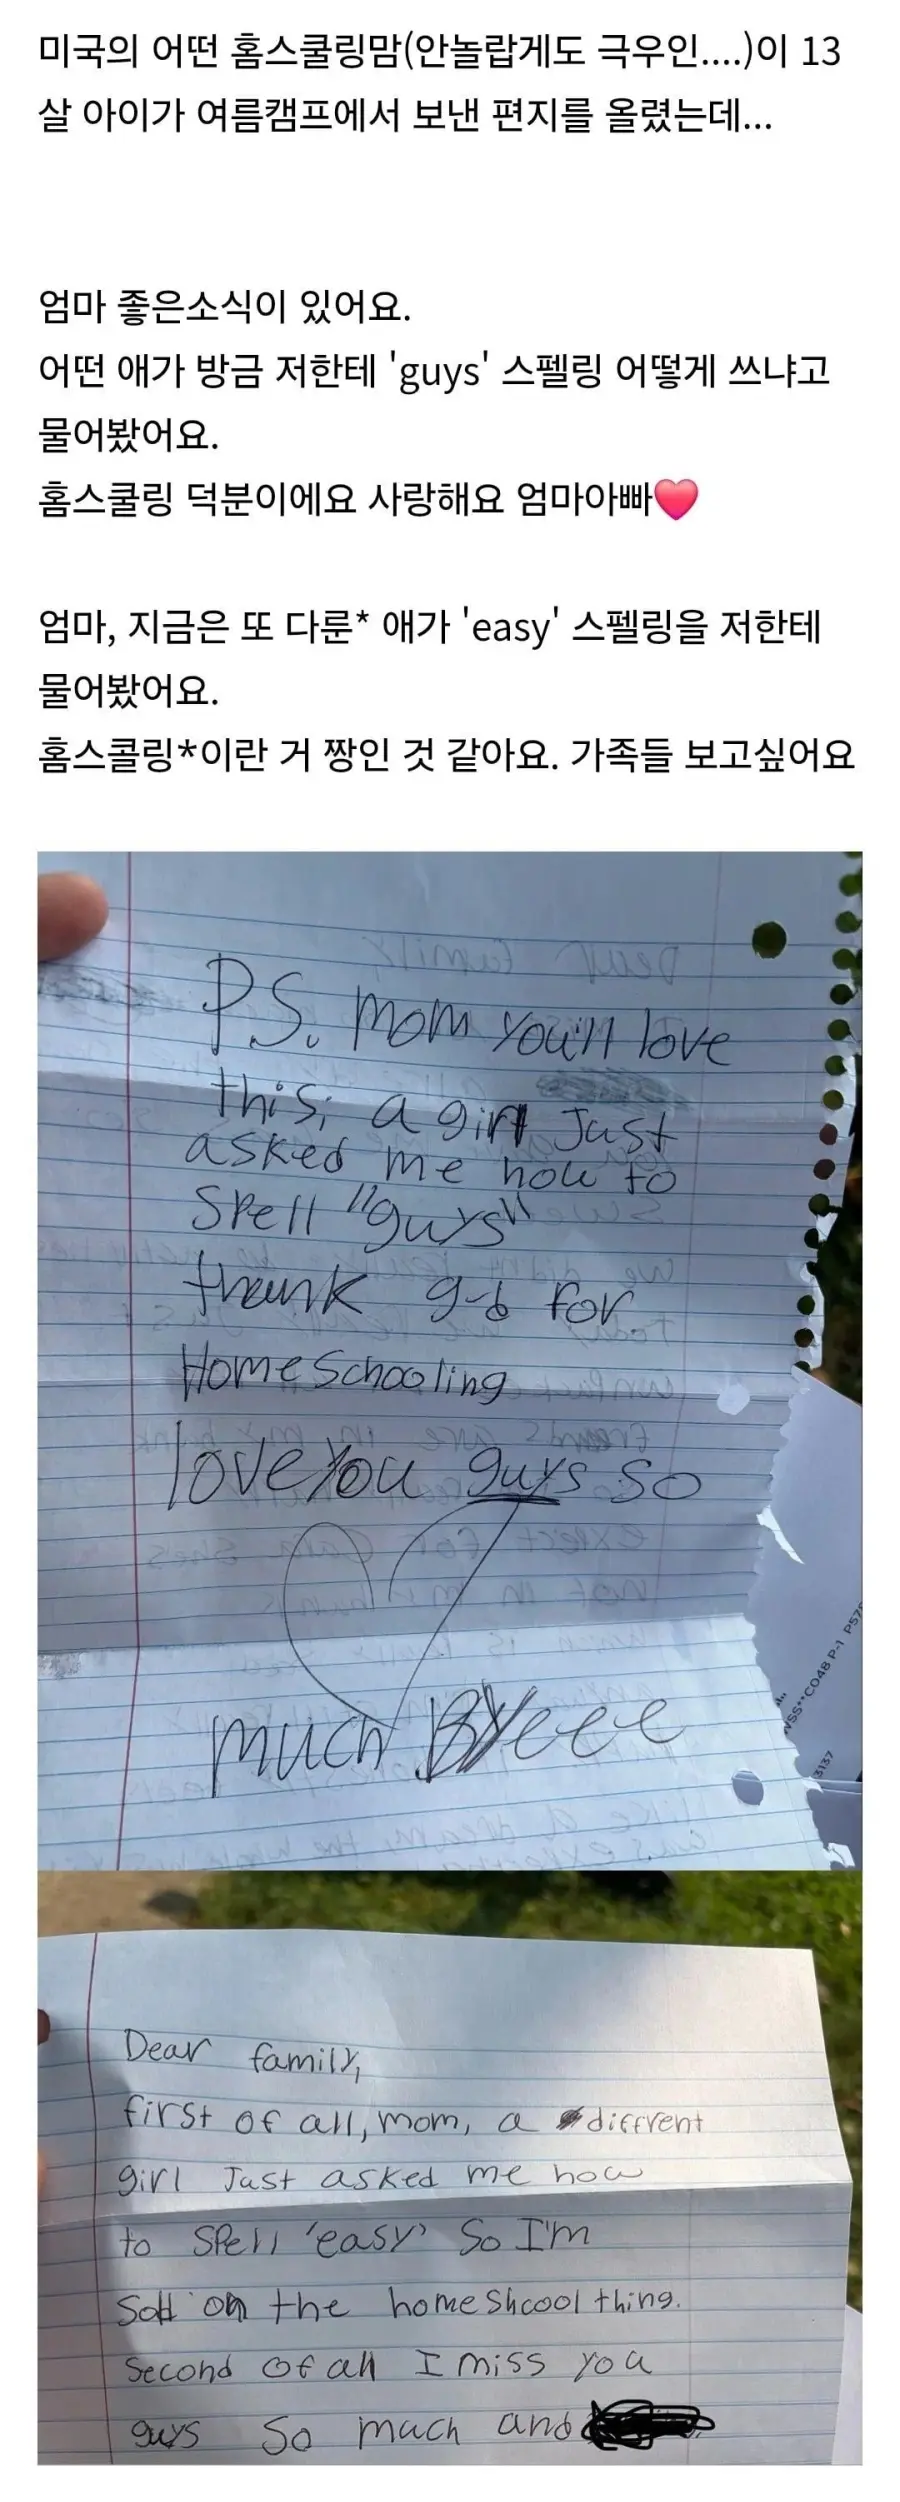 미국의 어떤 홈스쿨링맘(안놀랍게도 극우인....)이 13
살 아이가 여름캠프에서 보낸 편지를 올렸는데...
엄마 좋은소식이 있어요.
어떤 애가 방금 저한테 'guys' 스펠링 어떻게 쓰냐고
물어봤어요.
홈스쿨링 덕분이에요 사랑해요 엄마아빠❤️
엄마, 지금은 또 다룬* 애가 'easy' 스펠링을 저한테
물어봤어요.
홈스콜링*이란 거 짱인 것 같아요. 가족들 보고싶어요
P.S. Mom you'll love
this, a girl Just
asked me how to
Spell "guys"
thank g-d for
HomeSchooling
love you guys so
much BYeee
Dear family,
first of all, mom, a diffrent
girl Just asked me how
to spell 'easy' So I'm
Sold on the homeshcool thing.
Second of all I miss you
guys So much and
VSS**C048 P-1 P57
3137